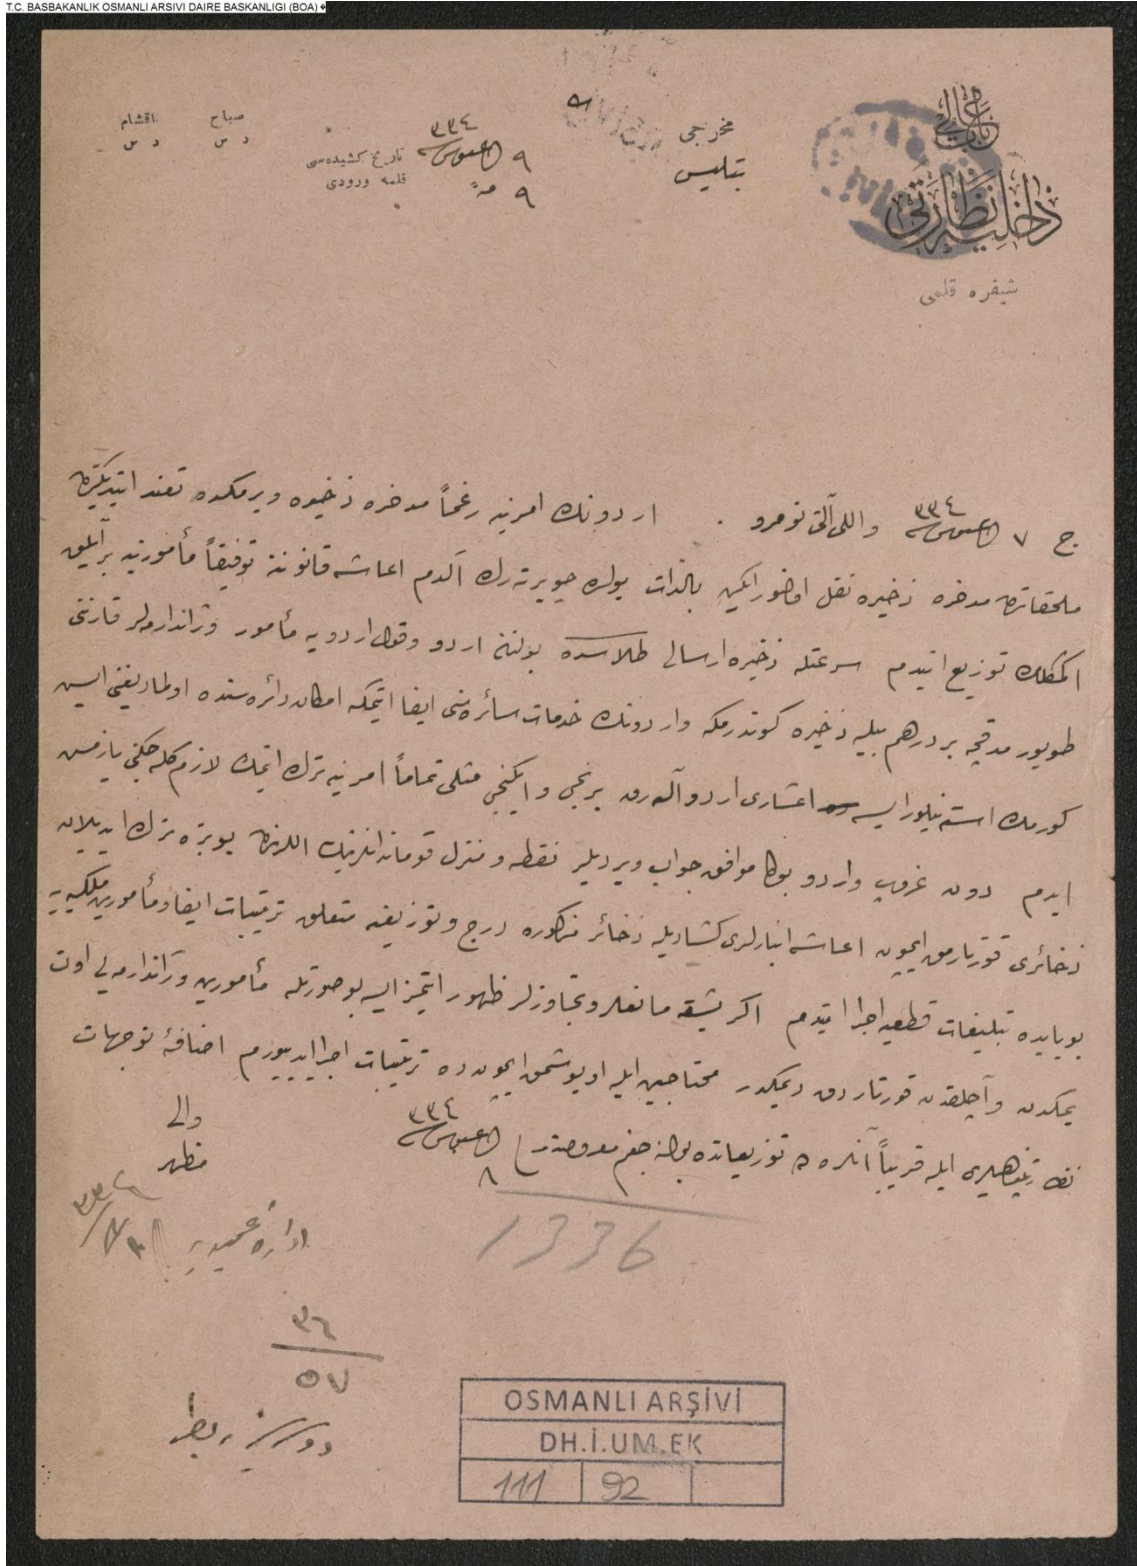 T.C. BASBAKANLIK OSMANLI ARSIVI DAIRE BASKANLIGI (BOA)
باب عالی
داخلیه نظارتی
شیفره قلمی
مخرجی
بتلیس
٩ اغستوس ٣٣٤
٩ منه
تاریخ کشیده‌سی
قلمه ورودی
صباح
د س
اقشام
د س
ج ٧ اغستوس ٣٣٤ و اللی آلتی نومرو . اردونك امرینه رغماً مدخره ذخیره ویرمکده تعند ایتدیکندن
ملحقاتدن مدخره ذخیره نقل اولنور ایکن بالذات یولدن چویرته‌رك آلدم اعاشه قانوننه توفیقاً مأمورینه بر آیلق
اکمکلك توزیع ایتدم سرعتله ذخیره ارسالی طلبنده بولنان اردو و قول اردویه مأمور و ژاندارمه‌لر قارننی
طویورمدقجه بر درهم بیله ذخیره کوندرمکه و اردونك خدمات سائره‌سنی ایفا ایتمکه امکان دائره‌سنده اولمادیغنی ایش
کورمك استه‌نیلورایسه اعشاری اردو آله‌رق برنجی و ایکنجی مثلی تماماً امرینه ترك ایتمك لازم کله‌جکنی یازمش
ایدم دون غروب و اردو بوکا موافق جواب ویردیلر نقطه و منزل قوماندانلرینك اللرندن بویزه ترك ایدیلان
ذخائری قورتارمق ایچون اعاشه انبارلری کشادیله ذخائر مذکوره درج و توزیعنه متعلق ترتیبات ایفا و مأمورین ملکیه‌یه
بوبابده تبلیغات قطعیه اجرا ایتدم اکر بشقه مانعلر و تجاوزلر ظهور ایتمز ایسه بوصورتله مأمورین و ژاندارمه‌یی اوت
یمکدن و آچلقدن قورتاردق دیمکدر محتاجین ایله اویوشمق ایچون ده ترتیبات اجرا ایدییورم اضافهٔ توجهات
نظارتپناهیلری ایله قریباً آنلره ده توزیعاتده بولنه‌جغم معروضدر ٨ اغستوس ٣٣٤
والی
مظهر
ادارهٔ عمومیه‌یه
1336
٣٦
٥٧
OSMANLI ARŞİVİ
DH.İ.UM.EK
111 92